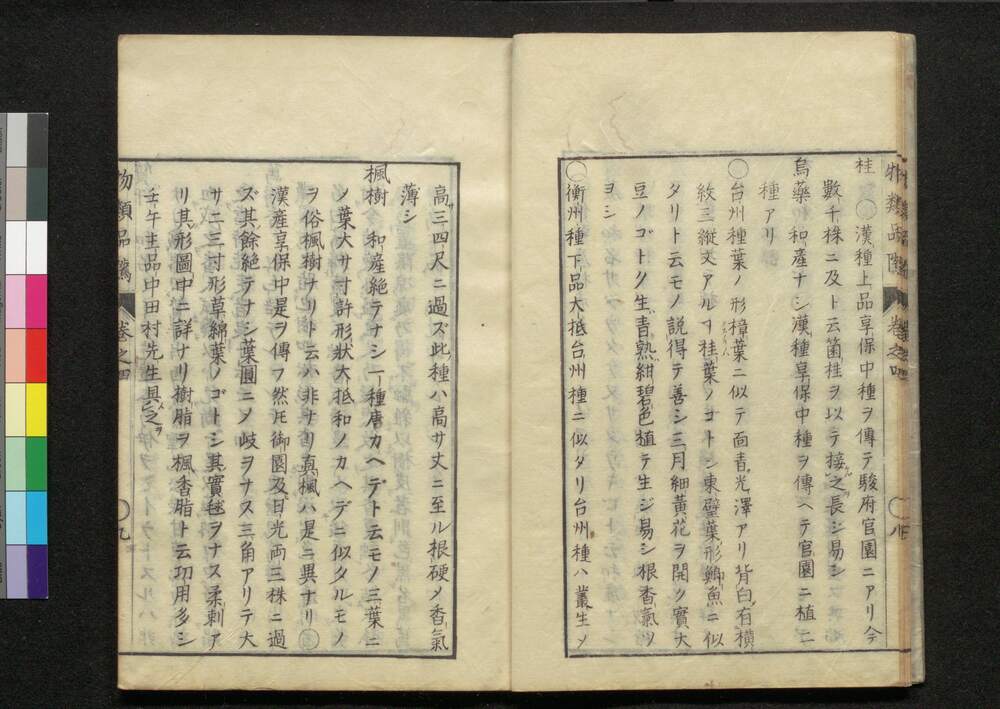 物類品隲 卷之四 八
桂 ○漢種上品享保中種ヲ傳テ駿府官園ニアリ今
數千株ニ及ト云箇桂ヲ以テ接之長シ易シ
烏藥 和産ナシ漢種享保中種ヲ傳ヘテ官園ニ植ニ
種アリ
○台州種葉ノ形樟葉ニ似テ面青光澤アリ背白有横
紋三縱文アルヿ桂葉ノゴトシ東壁葉形鰟魚ニ似
タリト云モノ説得テ善シ三月細黃花ヲ開ク實大
豆ノゴトク生青熟紺碧色植テ生ジ易シ根香氣ツ
ヨシ
○衡州種下品大抵台州種ニ似タリ台州種ハ叢生メ
高三四尺ニ過ズ此種ハ高サ丈ニ至ル根硬メ香氣
薄シ
楓樹 和産絶テナシ一種唐カヘデト云モノ三葉ニ
ノ葉大サ寸許形狀大抵和ノカヘデニ似タルモノ
ヲ俗楓樹ナリト云ハ非ナリ真楓ハ是ニ異ナリ○
漢産享保中是ヲ傳フ然𪜈御園及日光両三株ニ過
ズ其餘絶テナシ葉圓ニメ岐ヲナス三角アリテ大
サ二三寸形草綿葉ノゴトシ其實毬ヲナス柔刺ア
リ其形圖中ニ詳ナリ樹脂ヲ楓香脂ト云功用多シ
壬午主品中田村先生具之
物類品隲 卷之四 九